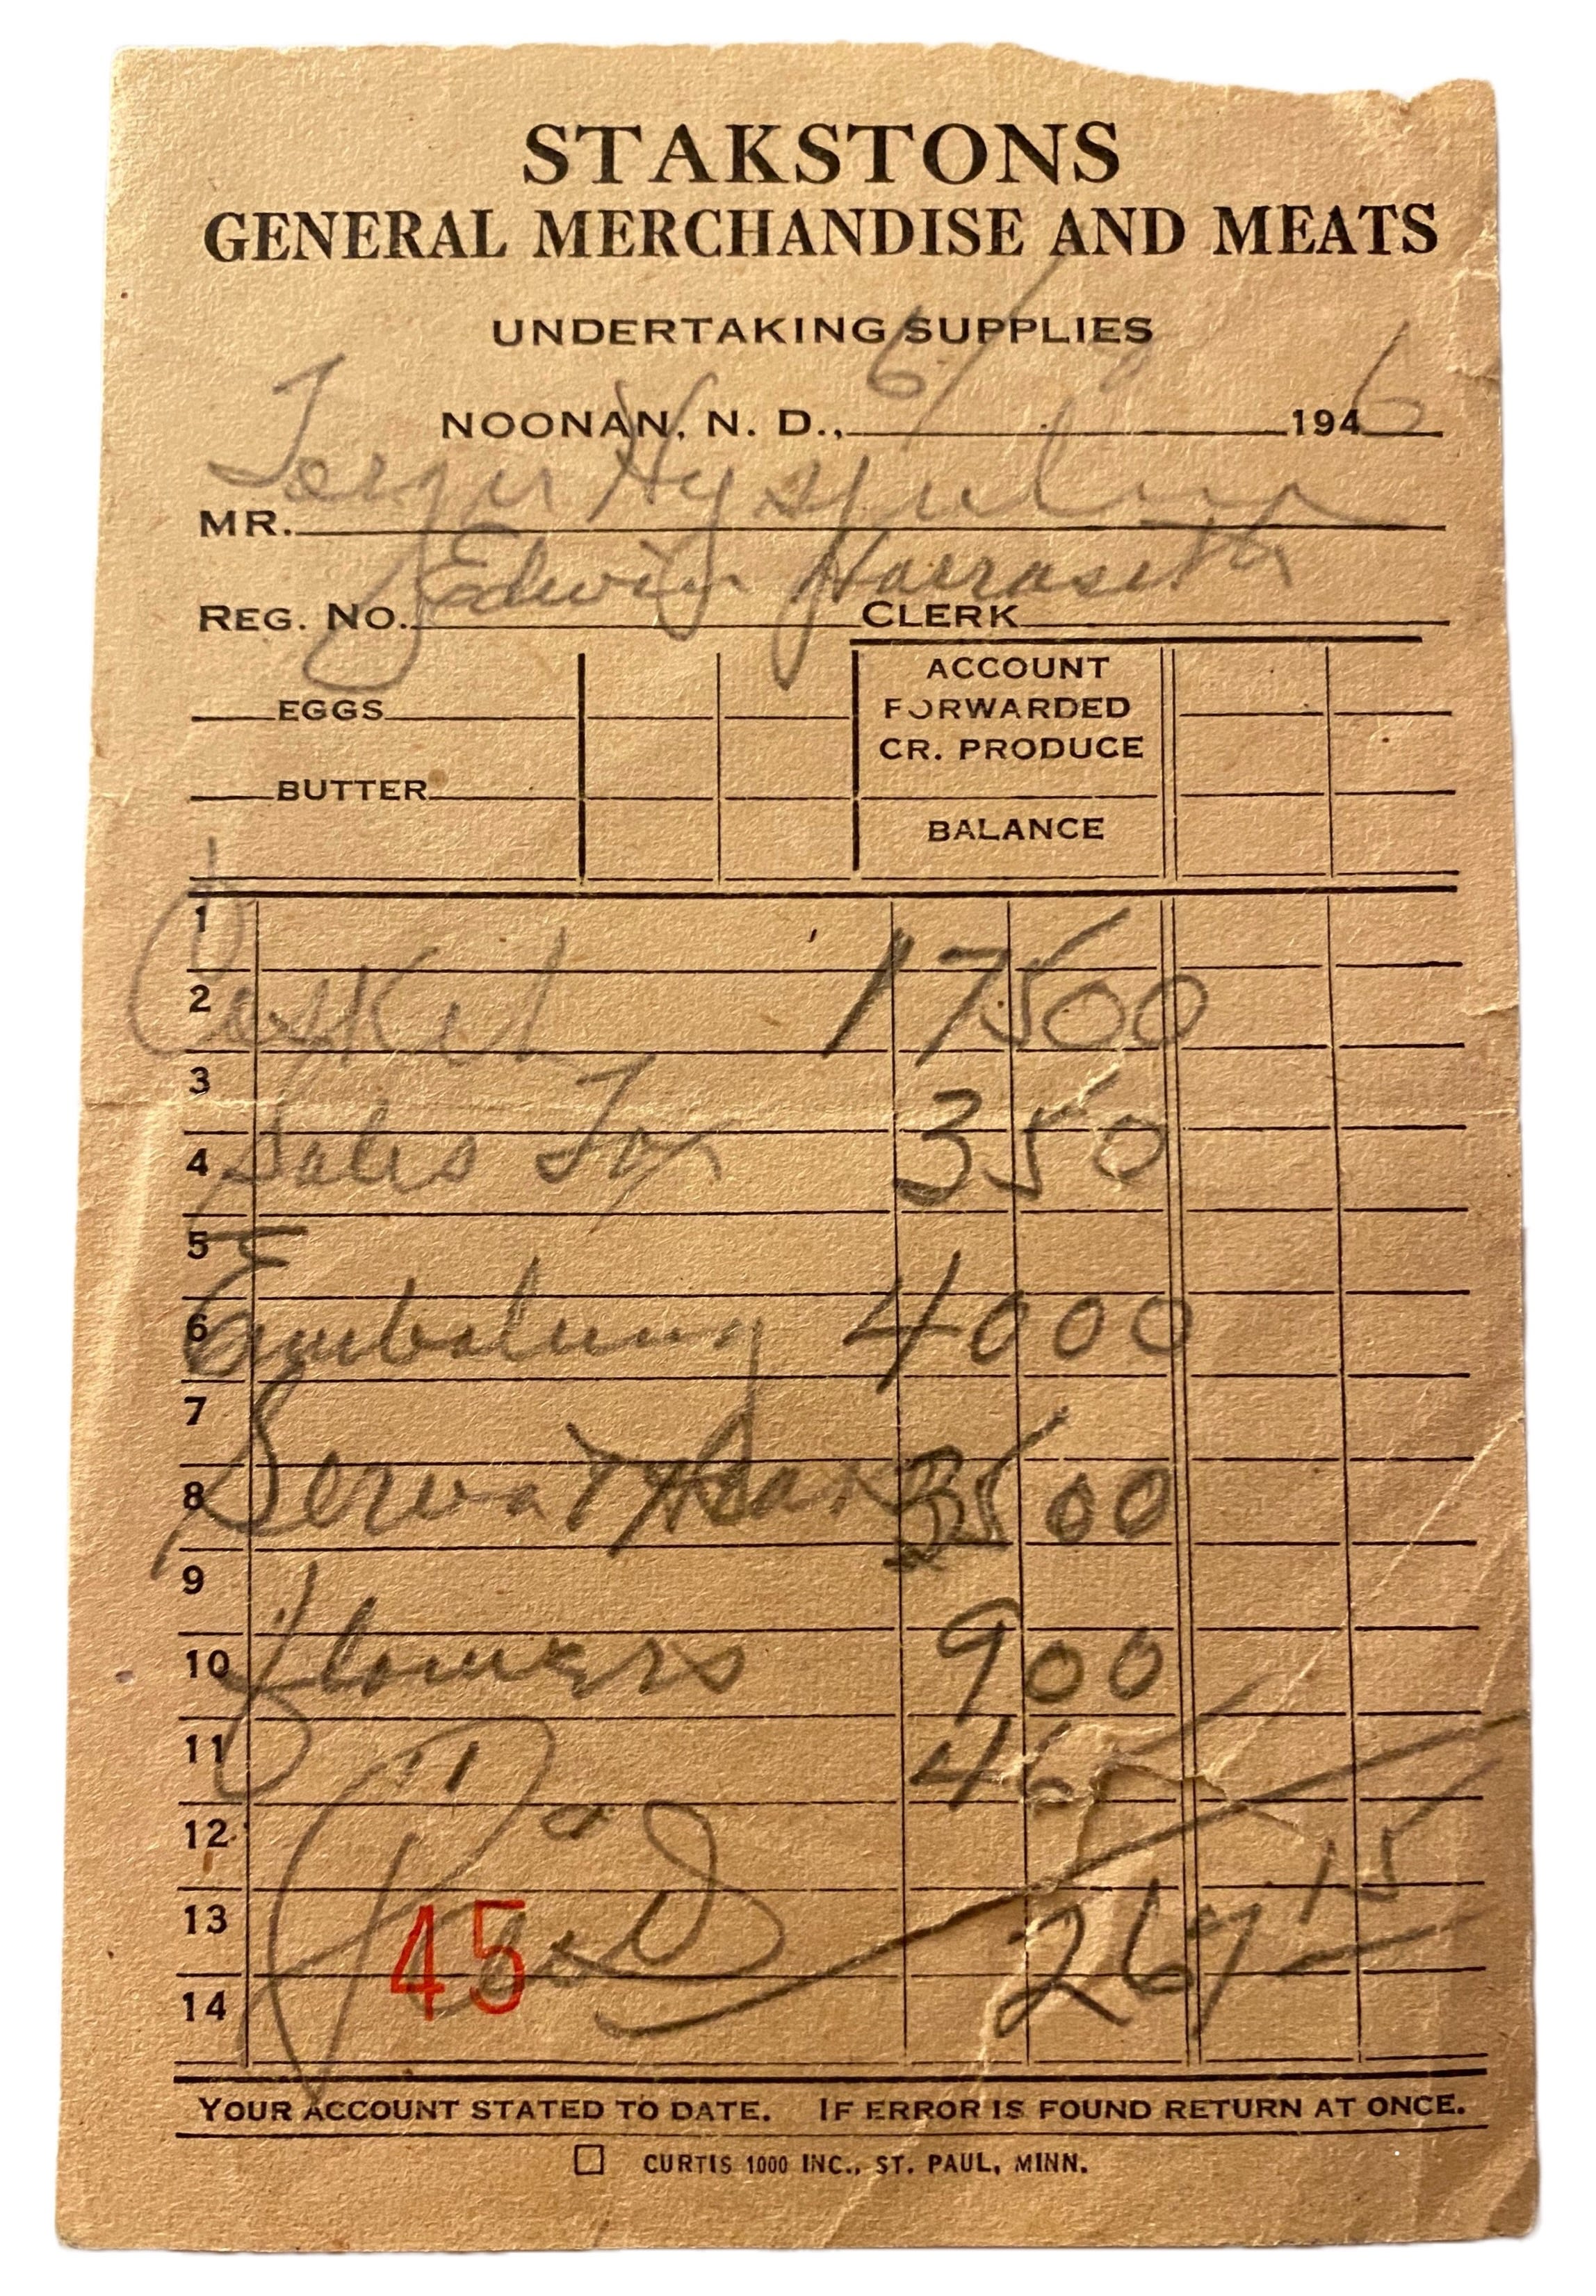 STAKSTONS
GENERAL MERCHANDISE AND MEATS
UNDERTAKING SUPPLIES
NOONAN, N. D., 6/ 1946
MR.
Edwin
REG. NO. CLERK
EGGS ACCOUNT FORWARDED
CR. PRODUCE
BUTTER
BALANCE
1
2 Casket 175 00
3
4 Sales Tax 3 50
5
6 Embalming 40 00
7
8 35 00
9
10 flowers 9 00
11
12 Paid
13 45 267 15
14
YOUR ACCOUNT STATED TO DATE. IF ERROR IS FOUND RETURN AT ONCE.
CURTIS 1000 INC., ST. PAUL, MINN.